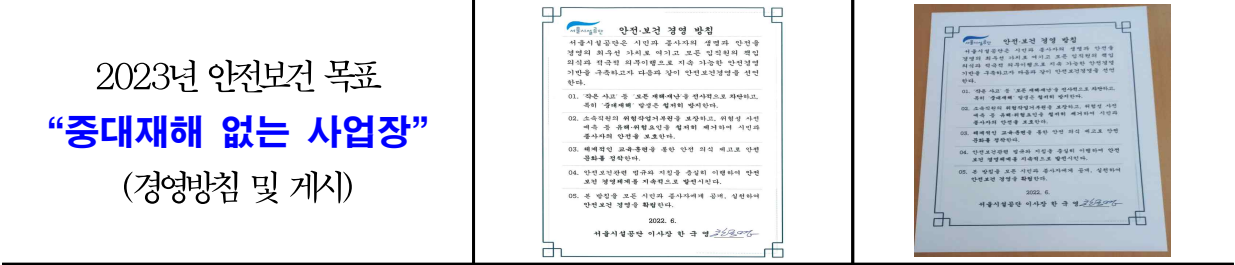 2023년 안전보건 목표
“중대재해 없는 사업장”
(경영방침 및 게시)
서울시설공단
안전·보건 경영 방침
서울시설공단은 시민과 종사자의 생명과 안전을
경영의 최우선 가치로 여기고 모든 임직원의 책임
의식과 적극적 의무이행으로 지속 가능한 안전경영
기반을 구축하고자 다음과 같이 안전보건경영을 선언
한다.
01. '작은 사고' 등 '모든 재해·재난'을 전사적으로 차단하고,
특히 '중대재해' 발생은 철저히 방지한다.
02. 소속직원의 위험작업거부권을 보장하고, 위험성 사전
예측 등 유해·위험요인을 철저히 제거하여 시민과
종사자의 안전을 보호한다.
03. 체계적인 교육·훈련을 통한 안전 의식 제고로 안전
문화를 정착한다.
04. 안전보건관련 법규와 지침을 충실히 이행하여 안전
보건 경영체계를 지속적으로 발전시킨다.
05. 본 방침을 모든 시민과 종사자에게 공개, 실천하여
안전보건 경영을 확립한다.
2022. 6.
서울시설공단 이사장 한 국 영
서울시설공단
안전·보건 경영 방침
서울시설공단은 시민과 종사자의 생명과 안전을
경영의 최우선 가치로 여기고 모든 임직원의 책임
의식과 적극적 의무이행으로 지속 가능한 안전경영
기반을 구축하고자 다음과 같이 안전보건경영을 선언
한다.
01. '작은 사고' 등 '모든 재해·재난'을 전사적으로 차단하고,
특히 '중대재해' 발생은 철저히 방지한다.
02. 소속직원의 위험작업거부권을 보장하고, 위험성 사전
예측 등 유해·위험요인을 철저히 제거하여 시민과
종사자의 안전을 보호한다.
03. 체계적인 교육·훈련을 통한 안전 의식 제고로 안전
문화를 정착한다.
04. 안전보건관련 법규와 지침을 충실히 이행하여 안전
보건 경영체계를 지속적으로 발전시킨다.
05. 본 방침을 모든 시민과 종사자에게 공개, 실천하여
안전보건 경영을 확립한다.
2022. 6.
서울시설공단 이사장 한 국 영